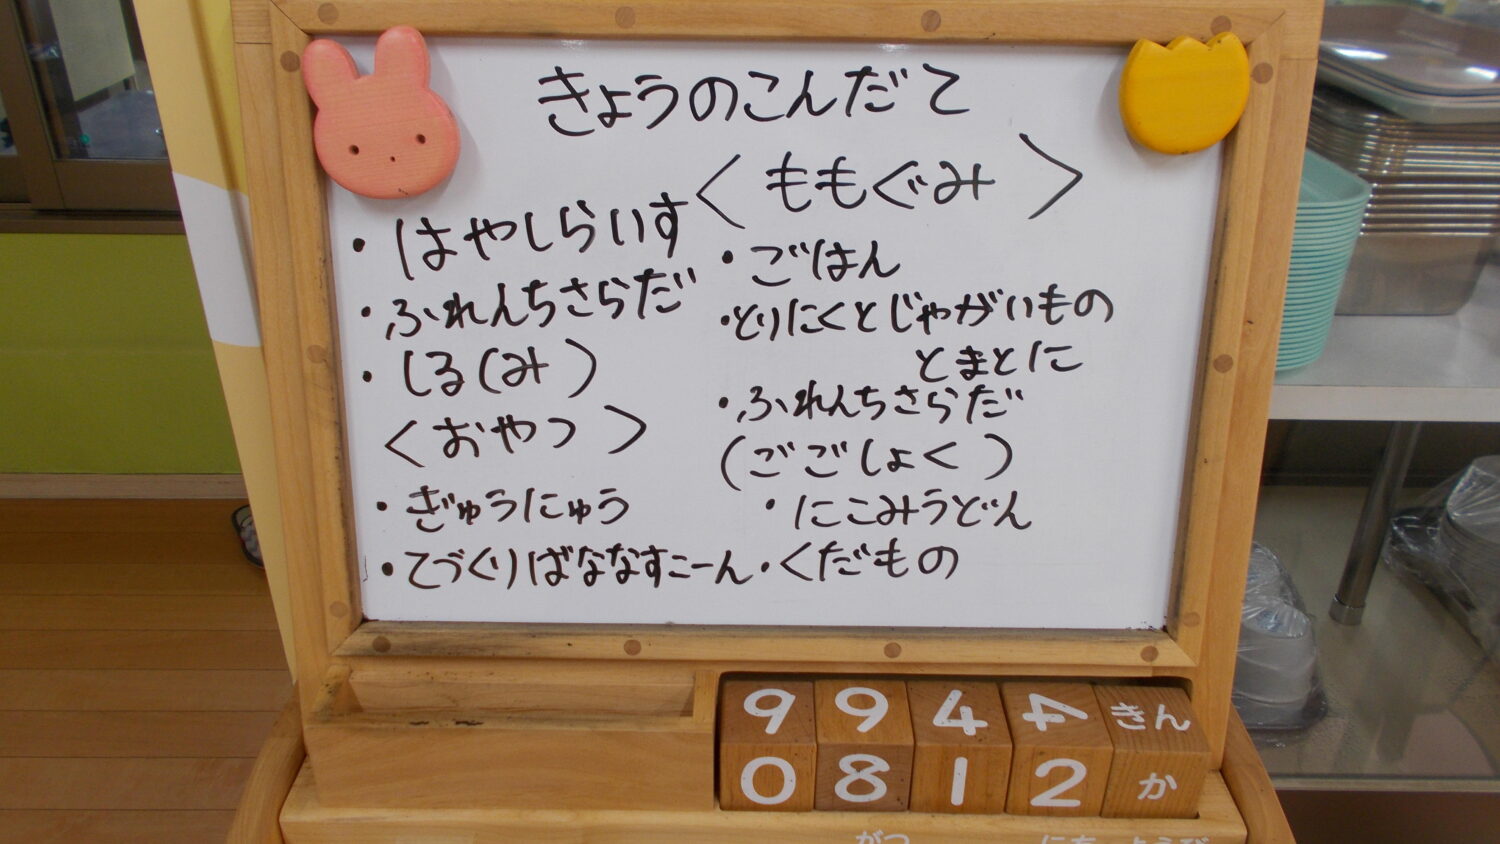 きょうのこんだて
・はやしらいす
・ふれんちさらだ
・しる(み)
<おやつ>
・ぎゅうにゅう
・てづくりばななすこーん
<ももぐみ>
・ごはん
・とりにくとじゃがいもの
とまとに
・ふれんちさらだ
(ごごしょく)
・にこみうどん
・くだもの
9 9 4 4 きん
0 8 1 2 か
がつ にち ようび